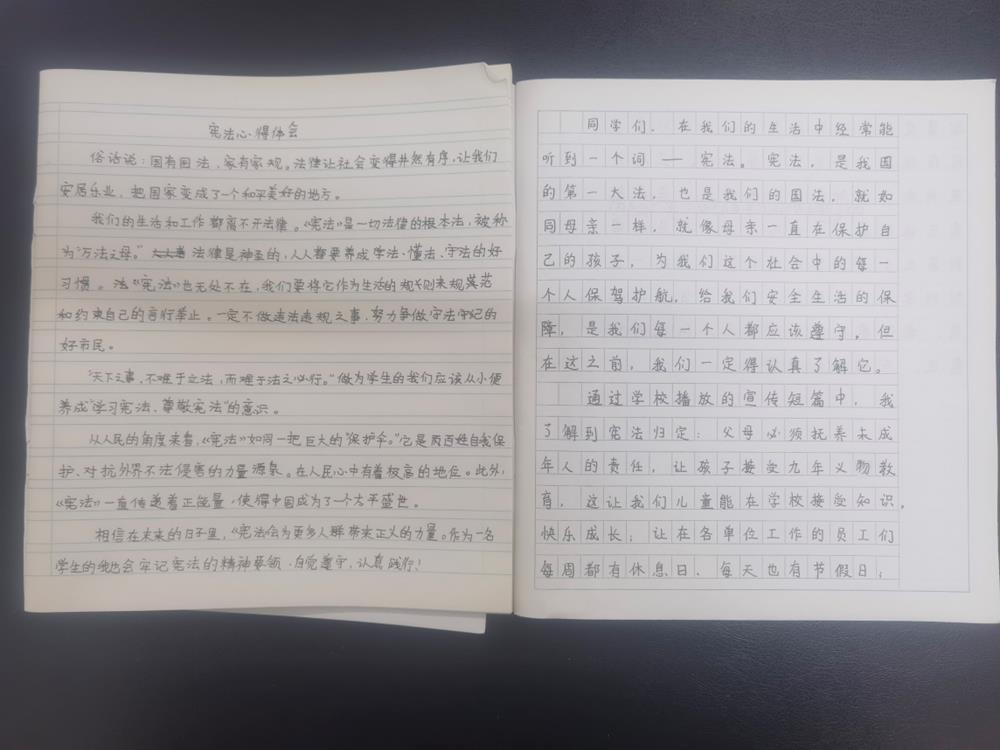 宪法心得体会
俗话说：国有国法、家有家规。法律让社会变得井然有序，让我们
安居乐业，把国家变成了一个和平美好的地方。
我们的生活和工作都离不开法律。《宪法》是一切法律的根本法，被称
为"万法之母。"法律是神圣的，人人都要养成学法、懂法、守法的好
习惯。法《宪法》也无处不在，我们要将它作为生活的规则来规范
和约束自己的言行举止。一定不做违法违规之事、努力争做守法守纪的
好市民。
"天下之事，不难于立法，而难于法之必行。"做为学生的我们应该从小便
养成"学习宪法、尊敬宪法"的意识。
从人民的角度来看，《宪法》如同一把巨大的"保护伞。"它是百姓自我保
护、对抗外界不法侵害的力量源泉。在人民心中有着极高的地位。此外，
《宪法》一直传递着正能量，使得中国成为了一个太平盛世。
相信在未来的日子里，《宪法》会为更多人群带来正大的力量。作为一名
学生的我也会牢记宪法的精神要领、自觉遵守，认真践行！
同学们，在我们的生活中经常能
听到一个词——宪法。宪法，是我国
的第一大法，也是我们的国法，就如
同母亲一样，就像母亲一直在保护自
己的孩子，为我们这个社会中的每一
个人保驾护航，给我们安全生活的保
障，是我们每一个人都应该遵守，但
在这之前，我们一定得认真了解它。
通过学校播放的宣传短篇中，我
了解到宪法归定：父母必须抚养未成
年人的责任，让孩子接受九年义物教
育，这让我们儿童能在学校接受知识，
快乐成长；让在各单位工作的员工们
每周都有休息日、每天也有节假日；